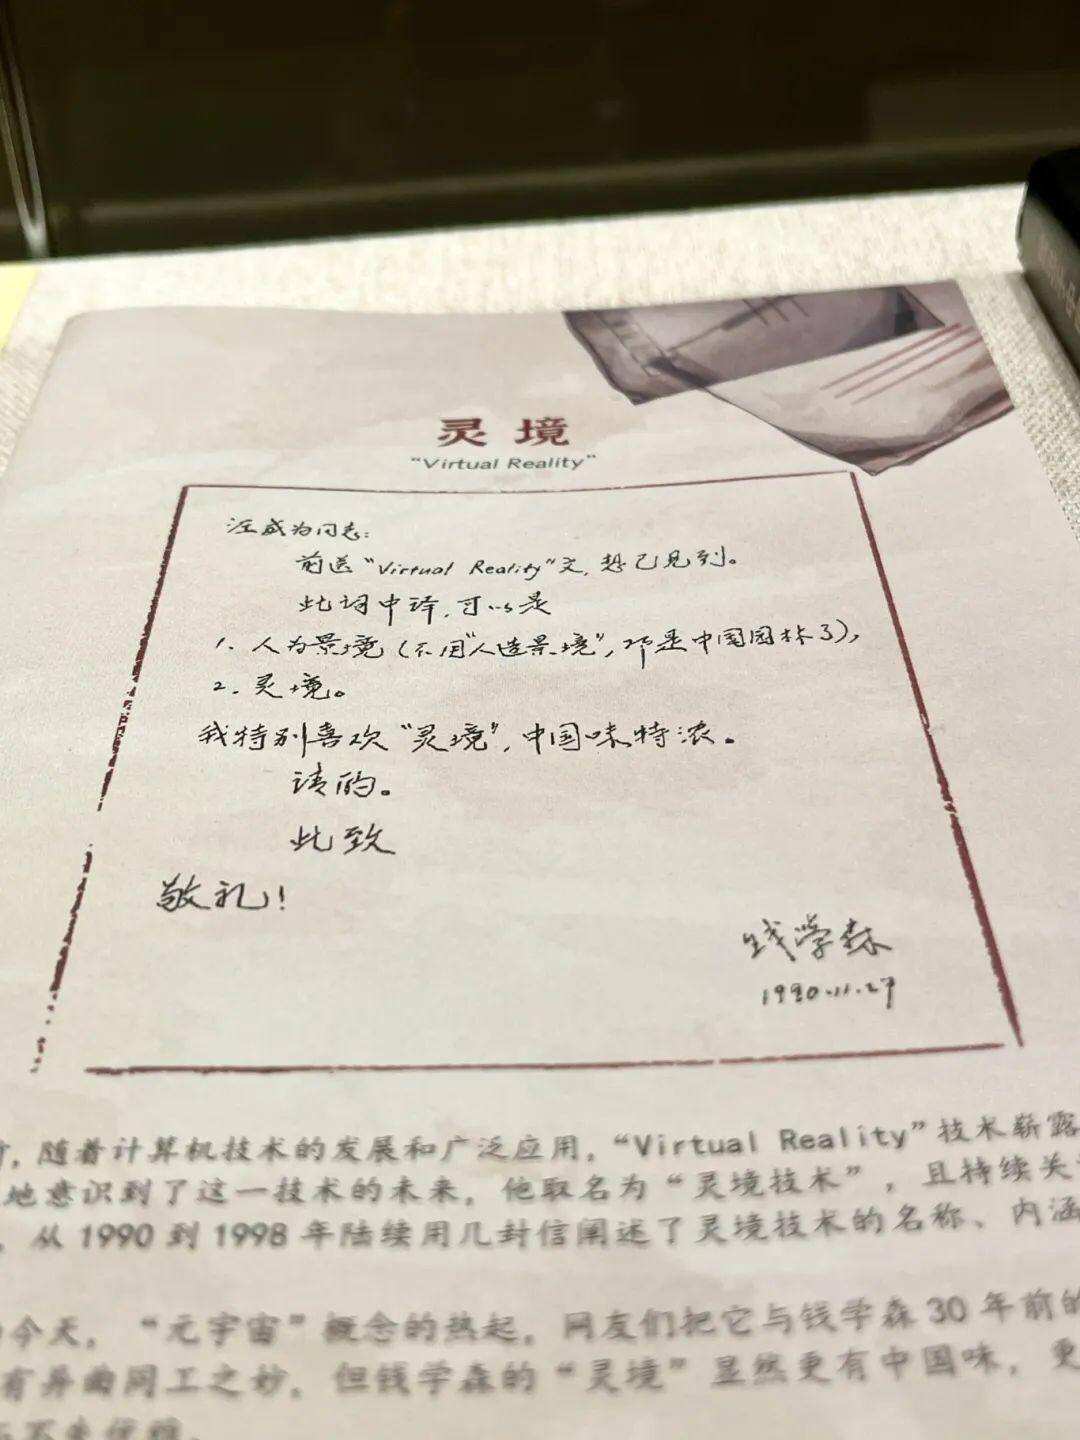 灵境
“Virtual Reality”
汪成为同志：
前送“Virtual Reality”文，想已见到。
此词中译，可以是
1. 人为景境（不用“人造景境”，那是中国园林了），
2. 灵境。
我特别喜欢“灵境”，中国味特浓。
请酌。
此致
敬礼！
钱学森
1990.11.27
，随着计算机技术的发展和广泛应用，“Virtual Reality”技术崭露
地意识到了这一技术的未来，他取名为“灵境技术”，且持续关
，从 1990 到 1998 年陆续用几封信阐述了灵境技术的名称、内涵
今天，“元宇宙”概念的热起，网友们把它与钱学森 30 年前的
有异曲同工之妙，但钱学森的“灵境”显然更有中国味，更